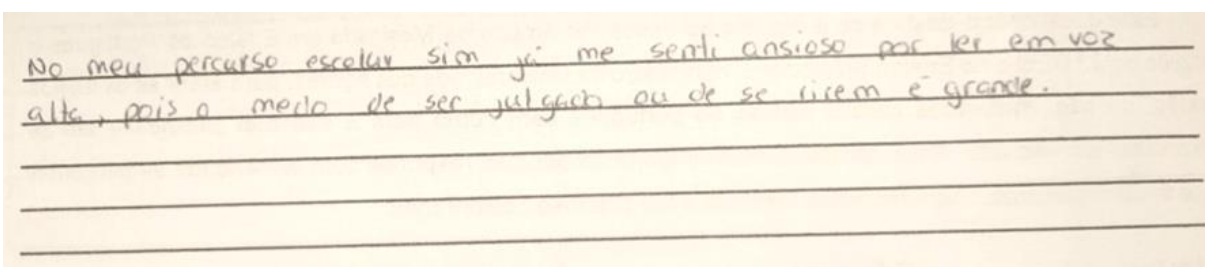 No meu percurso escolar sim já me senti ansioso por ler em voz
alta, pois o medo de ser julgado ou de se rirem é grande.